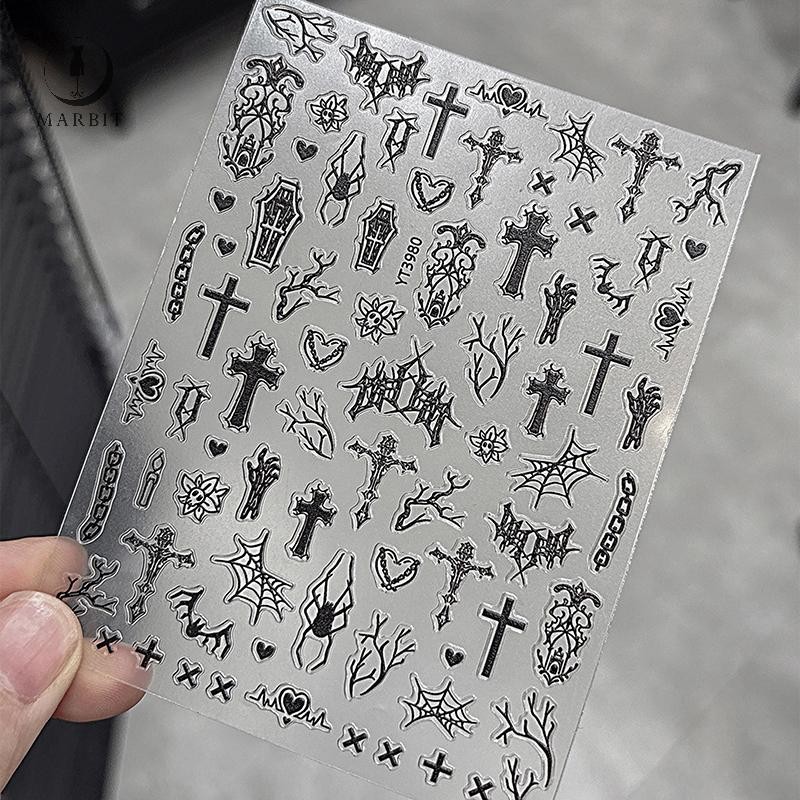 MARBIT
YT3980